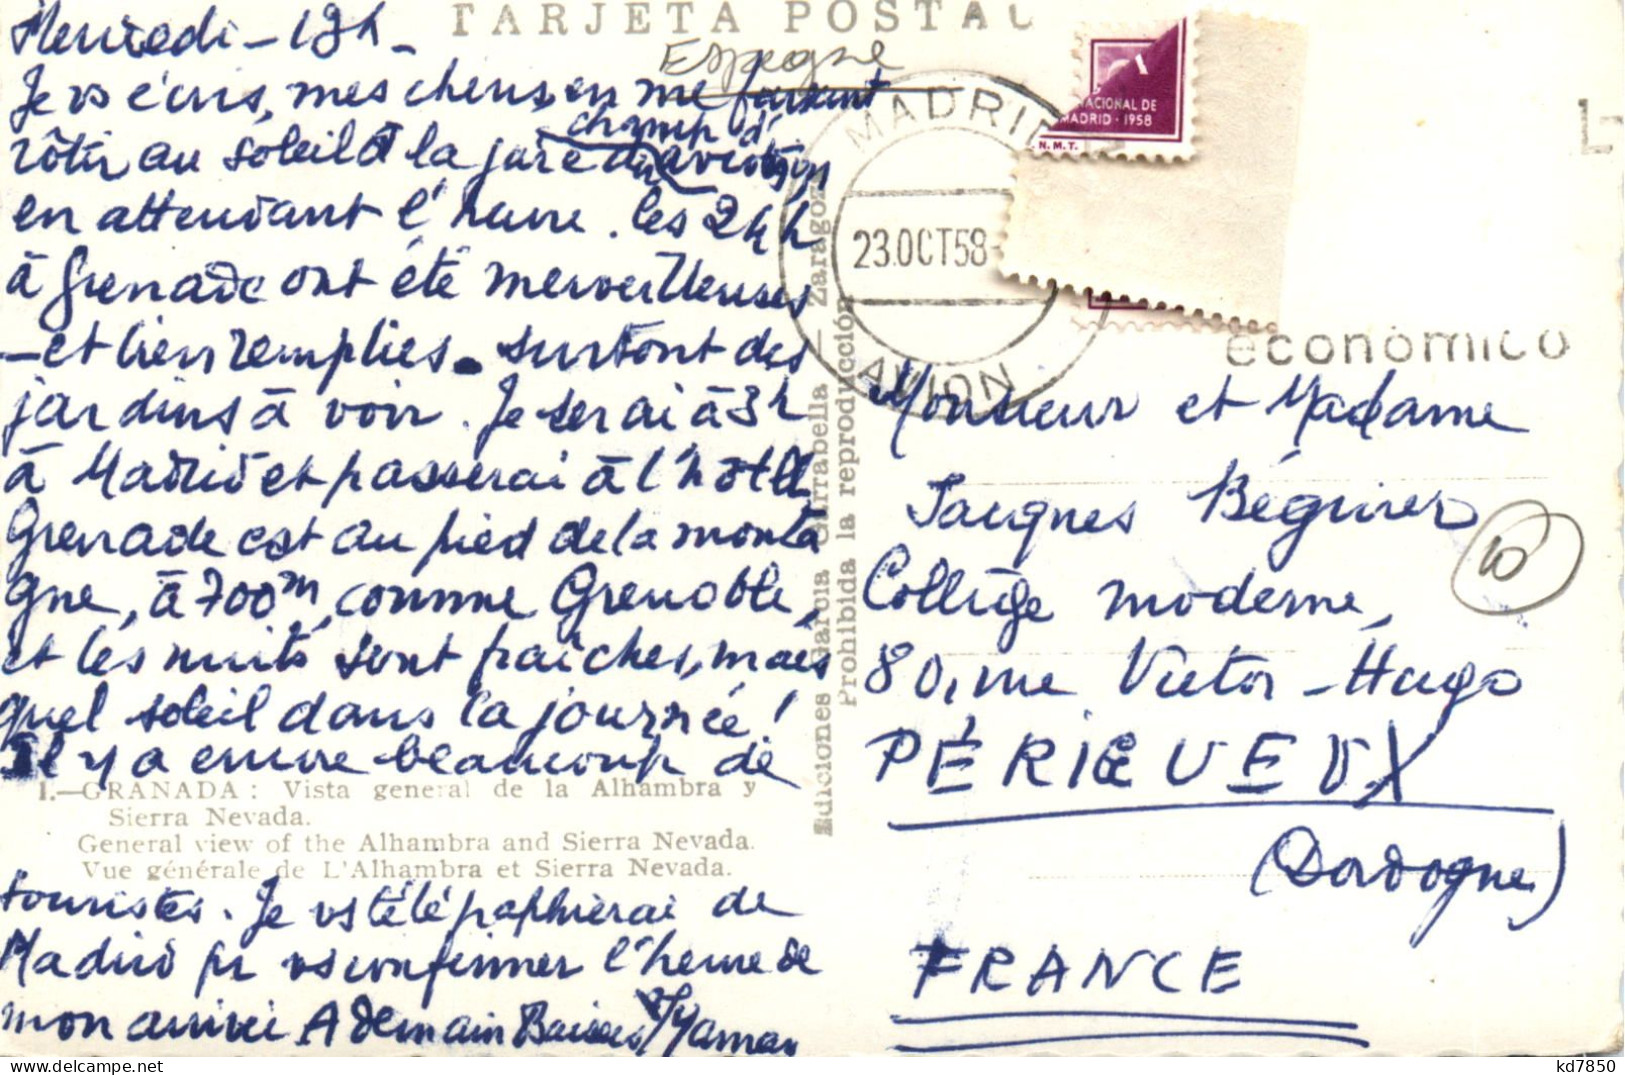 TARJETA POSTAL
Espagne
Mercredi - 13h -
Je vs écris, mes chers, en me faisant
champ d'
rôtir au soleil à la gare du aviation
en attendant l'heure. les 24h
à Grenade ont été merveilleuses
- et bien remplies. surtout des
jardins à voir. Je serai à 3h
à Madrid et passerai à l'hôtel
Grenade est au pied de la monta
gne, à 700m, comme Grenoble,
et les nuits sont fraîches, mais
quel soleil dans la journée!
Il y a encore beaucoup de
1.—GRANADA: Vista general de la Alhambra y
Sierra Nevada.
General view of the Alhambra and Sierra Nevada.
Vue générale de L'Alhambra et Sierra Nevada.
touristes. Je vs télégraphierai de
Madrid pr vs confirmer l'heure de
mon arrivée A demain Baisers
Ediciones García Garrabella - Zaragoza
Prohibida la reproducción
MADRID
23.OCT58
AVION
NACIONAL DE
MADRID · 1958
N.M.T.
económico
Monsieur et Madame
Jacques Béguier
Collège moderne,
80, rue Victor-Hugo
PÉRIGUEUX
(Dordogne)
FRANCE
10
kd7850